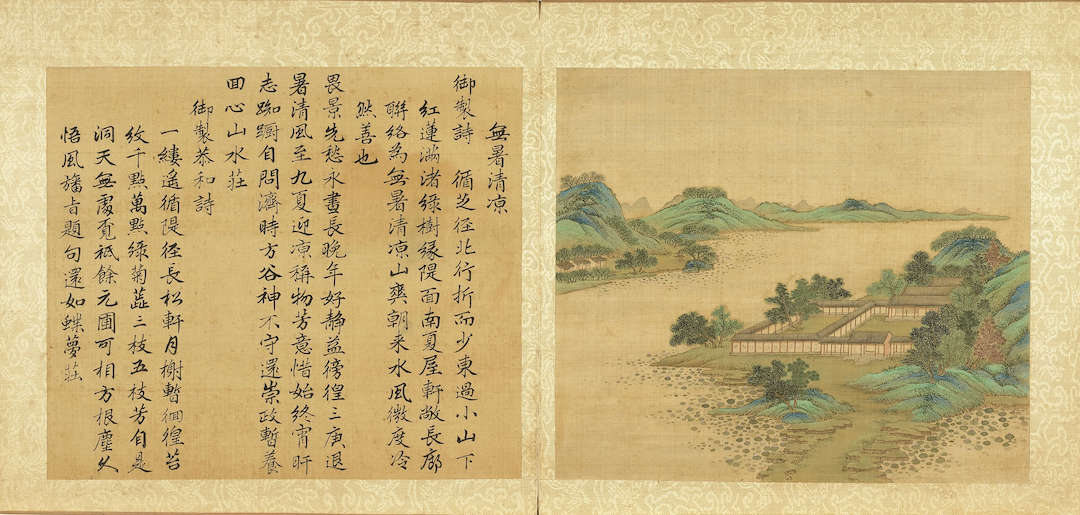 無暑清凉
御製詩　循芝徑北行折而少東過小山下
紅蓮滿渚綠樹緣隄面南夏屋軒敞長廊
聯絡為無暑清凉山爽朝来水風微度冷
然善也
畏景先愁永晝長晚年好靜益徬徨三庚退
暑清風至九夏迎凉稱物芳意惜始終宵旰
志踟躕自問濟時方谷神不守還崇政暫養
囬心山水莊
御製恭和詩
一縷遙循隄徑長松軒月榭暫徊徨苔
紋千點萬點綠菊蕋三枝五枝芳自是
洞天無處覓祇餘元圃可相方根塵久
悟風旛旨題句還如蝶夢莊